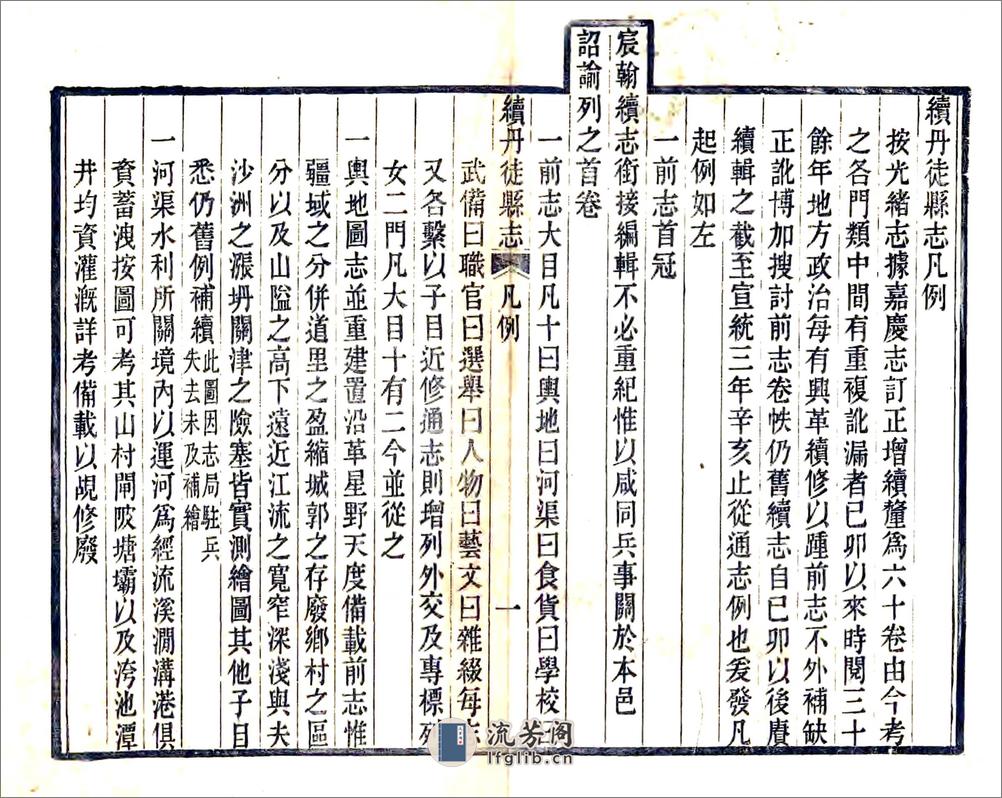 續丹徒縣志凡例
按光緒志據嘉慶志訂正增續釐爲六十卷由今考
之各門類中間有重複訛漏者已卯以來時閱三十
餘年地方政治每有興革續修以踵前志不外補缺
正訛博加搜討前志卷帙仍舊續志自已卯以後賡
續輯之截至宣統三年辛亥止從通志例也爰發凡
起例如左
一前志首冠
宸翰續志銜接編輯不必重紀惟以咸同兵事關於本邑
詔諭列之首卷
一前志大目凡十曰輿地曰河渠曰食貨曰學校曰
續丹徒縣志 凡例 一
武備曰職官曰選舉曰人物曰藝文曰雜綴每志
又各繫以子目近修通志則增列外交及專標列
女二門凡大目十有二今並從之
一輿地圖志並重建置沿革星野天度備載前志惟
疆域之分併道里之盈縮城郭之存廢鄉村之區
分以及山隘之高下遠近江流之寬窄深淺與夫
沙洲之漲坍關津之險塞皆實測繪圖其他子目
悉仍舊例補續此圖因志局駐兵
失去未及補繪
一河渠水利所關境內以運河爲經流溪澗溝港俱
資蓄洩按圖可考其山村閘陂塘壩以及洿池潭
井均資灌漑詳考備載以覘修廢
流芳阁
lfglib.cn